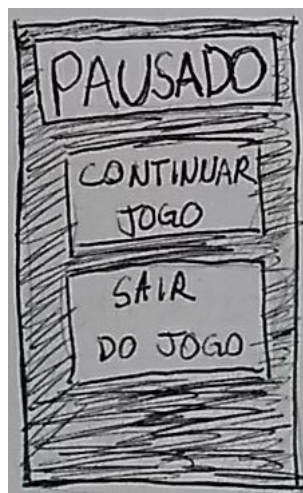 PAUSADO
CONTINUAR
JOGO
SAIR
DO JOGO